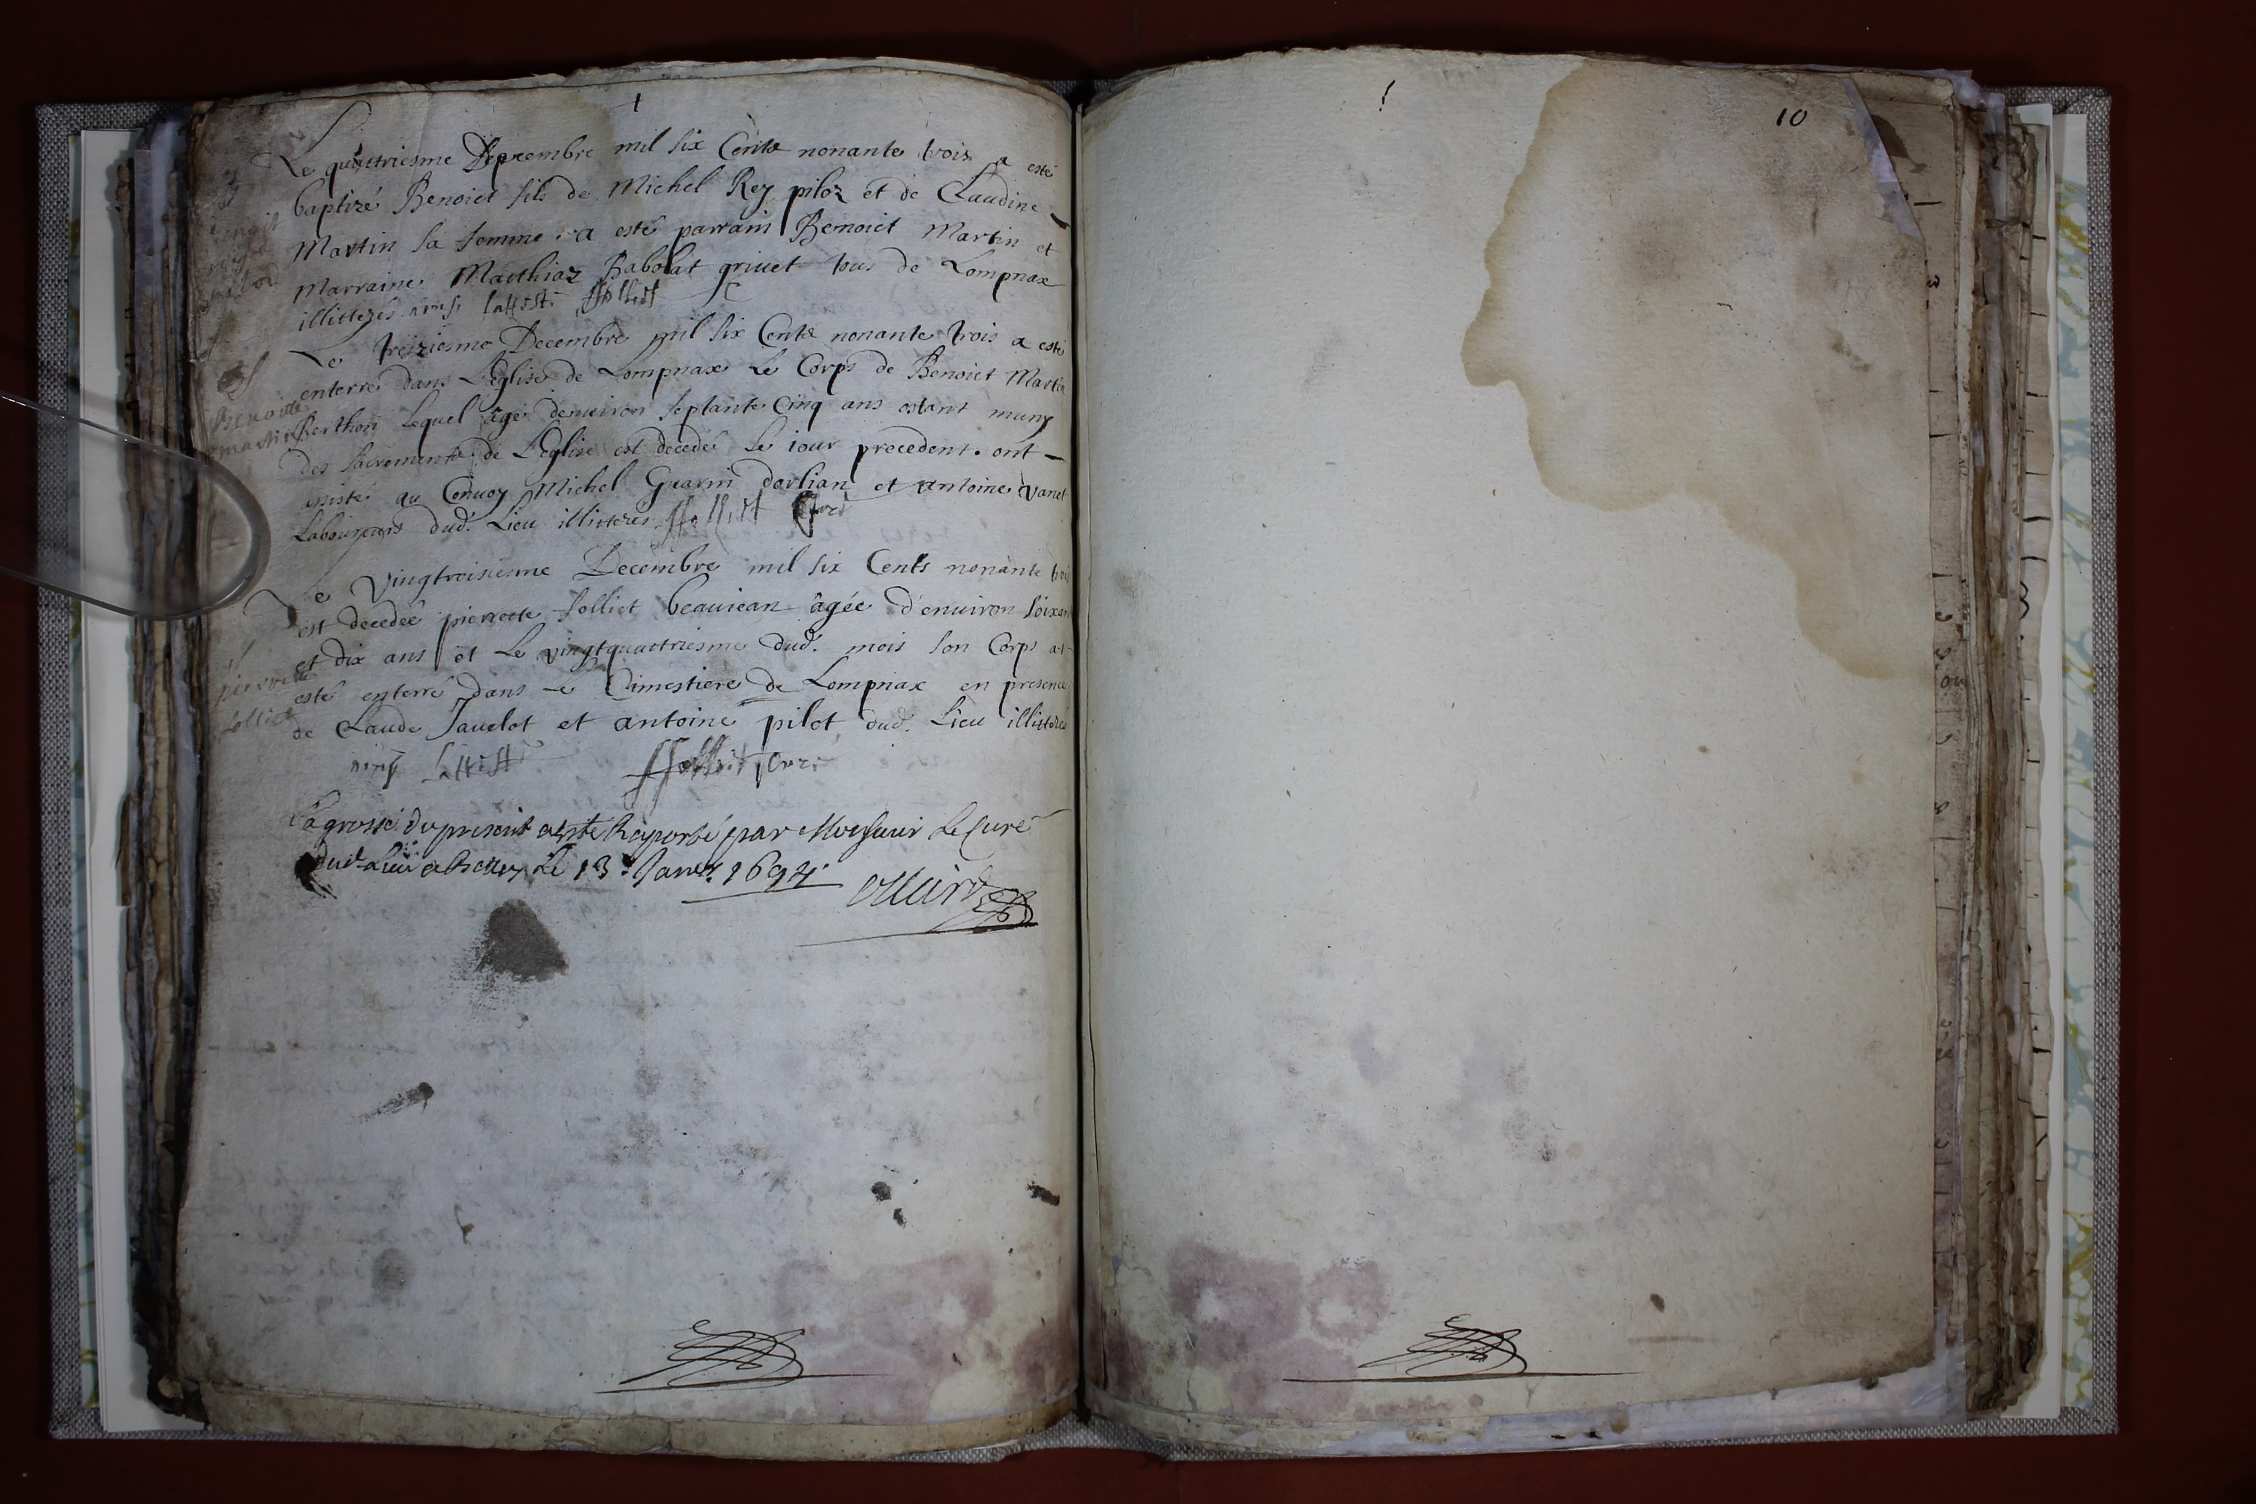 Le quattriesme Decembre mil six Cents nonante trois a esté
baptizé Benoict fils de Michel Rey piloz et de Claudine
Martin sa femme a esté parrain Benoict Martin et
Marraine Matthiaz Babolat grivet tous de Lompnax
illitterés ainsy l'atteste
Le treiziesme Decembre mil six Cents nonante trois a esté
enterré dans L'eglise de Lompnax Le Corps de Benoict Martin
Berthon Lequel âgé denuiron septante Cinq ans estant muny
des sacrements de L'Eglise est decedé Le iour precedent. ont
assisté au Conuoy Michel Guarin dorlian et antoine
Laboureurs dud. Lieu illitterés Curé
Le Vingtroisiesme Decembre mil six Cents nonante trois
est decedée pierrette Solliet beauiean âgée d'enuiron soixan
et dix ans et Le vingtquattriesme dud. mois son Corps a
esté enterré dans Le Cimestiere de Lompnax en presence
de Claude Jauelot et antoine pilot dud. Lieu illitterés
ainsy L'atteste Curé
pierrette
Solliet
Benoict
martin
La grosse du present a esté Raporté par Monsieur Le Curé
dud. Lieu a Belley Le 13e Janer. 1694.
10